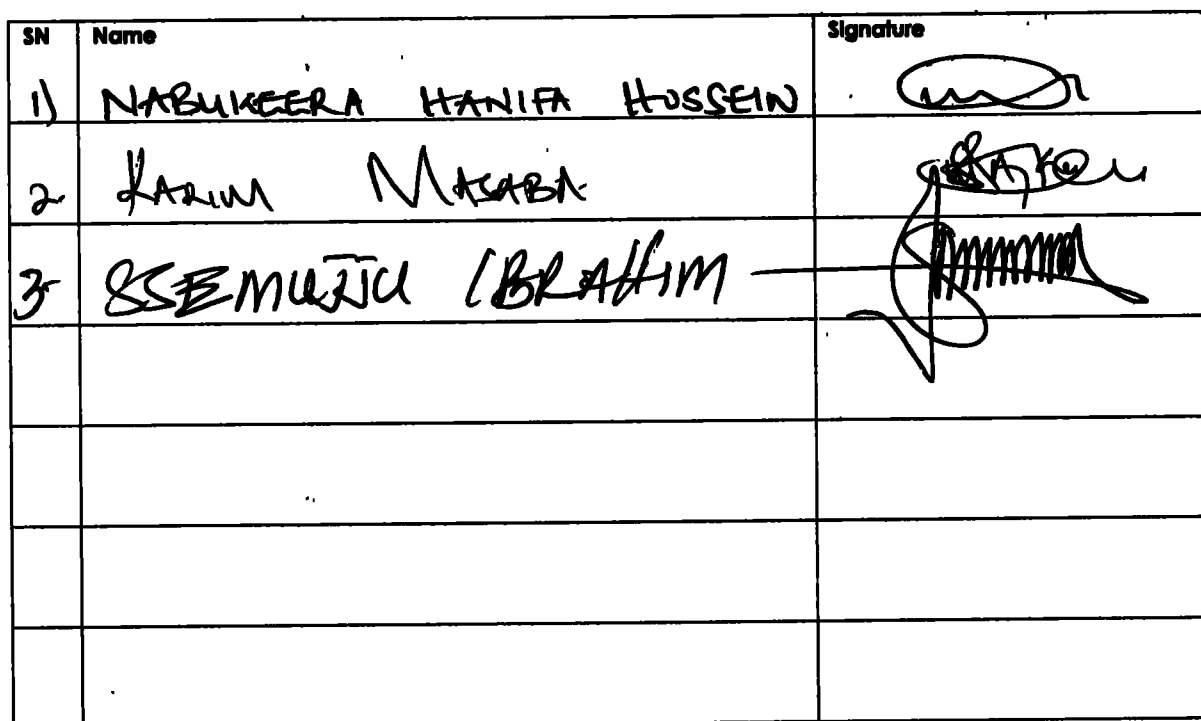 SN Name Signature
1) NABUKEERA HANIFA HUSSEIN
2- KARIM MASABA
3- SSEMUJJU IBRAHIM